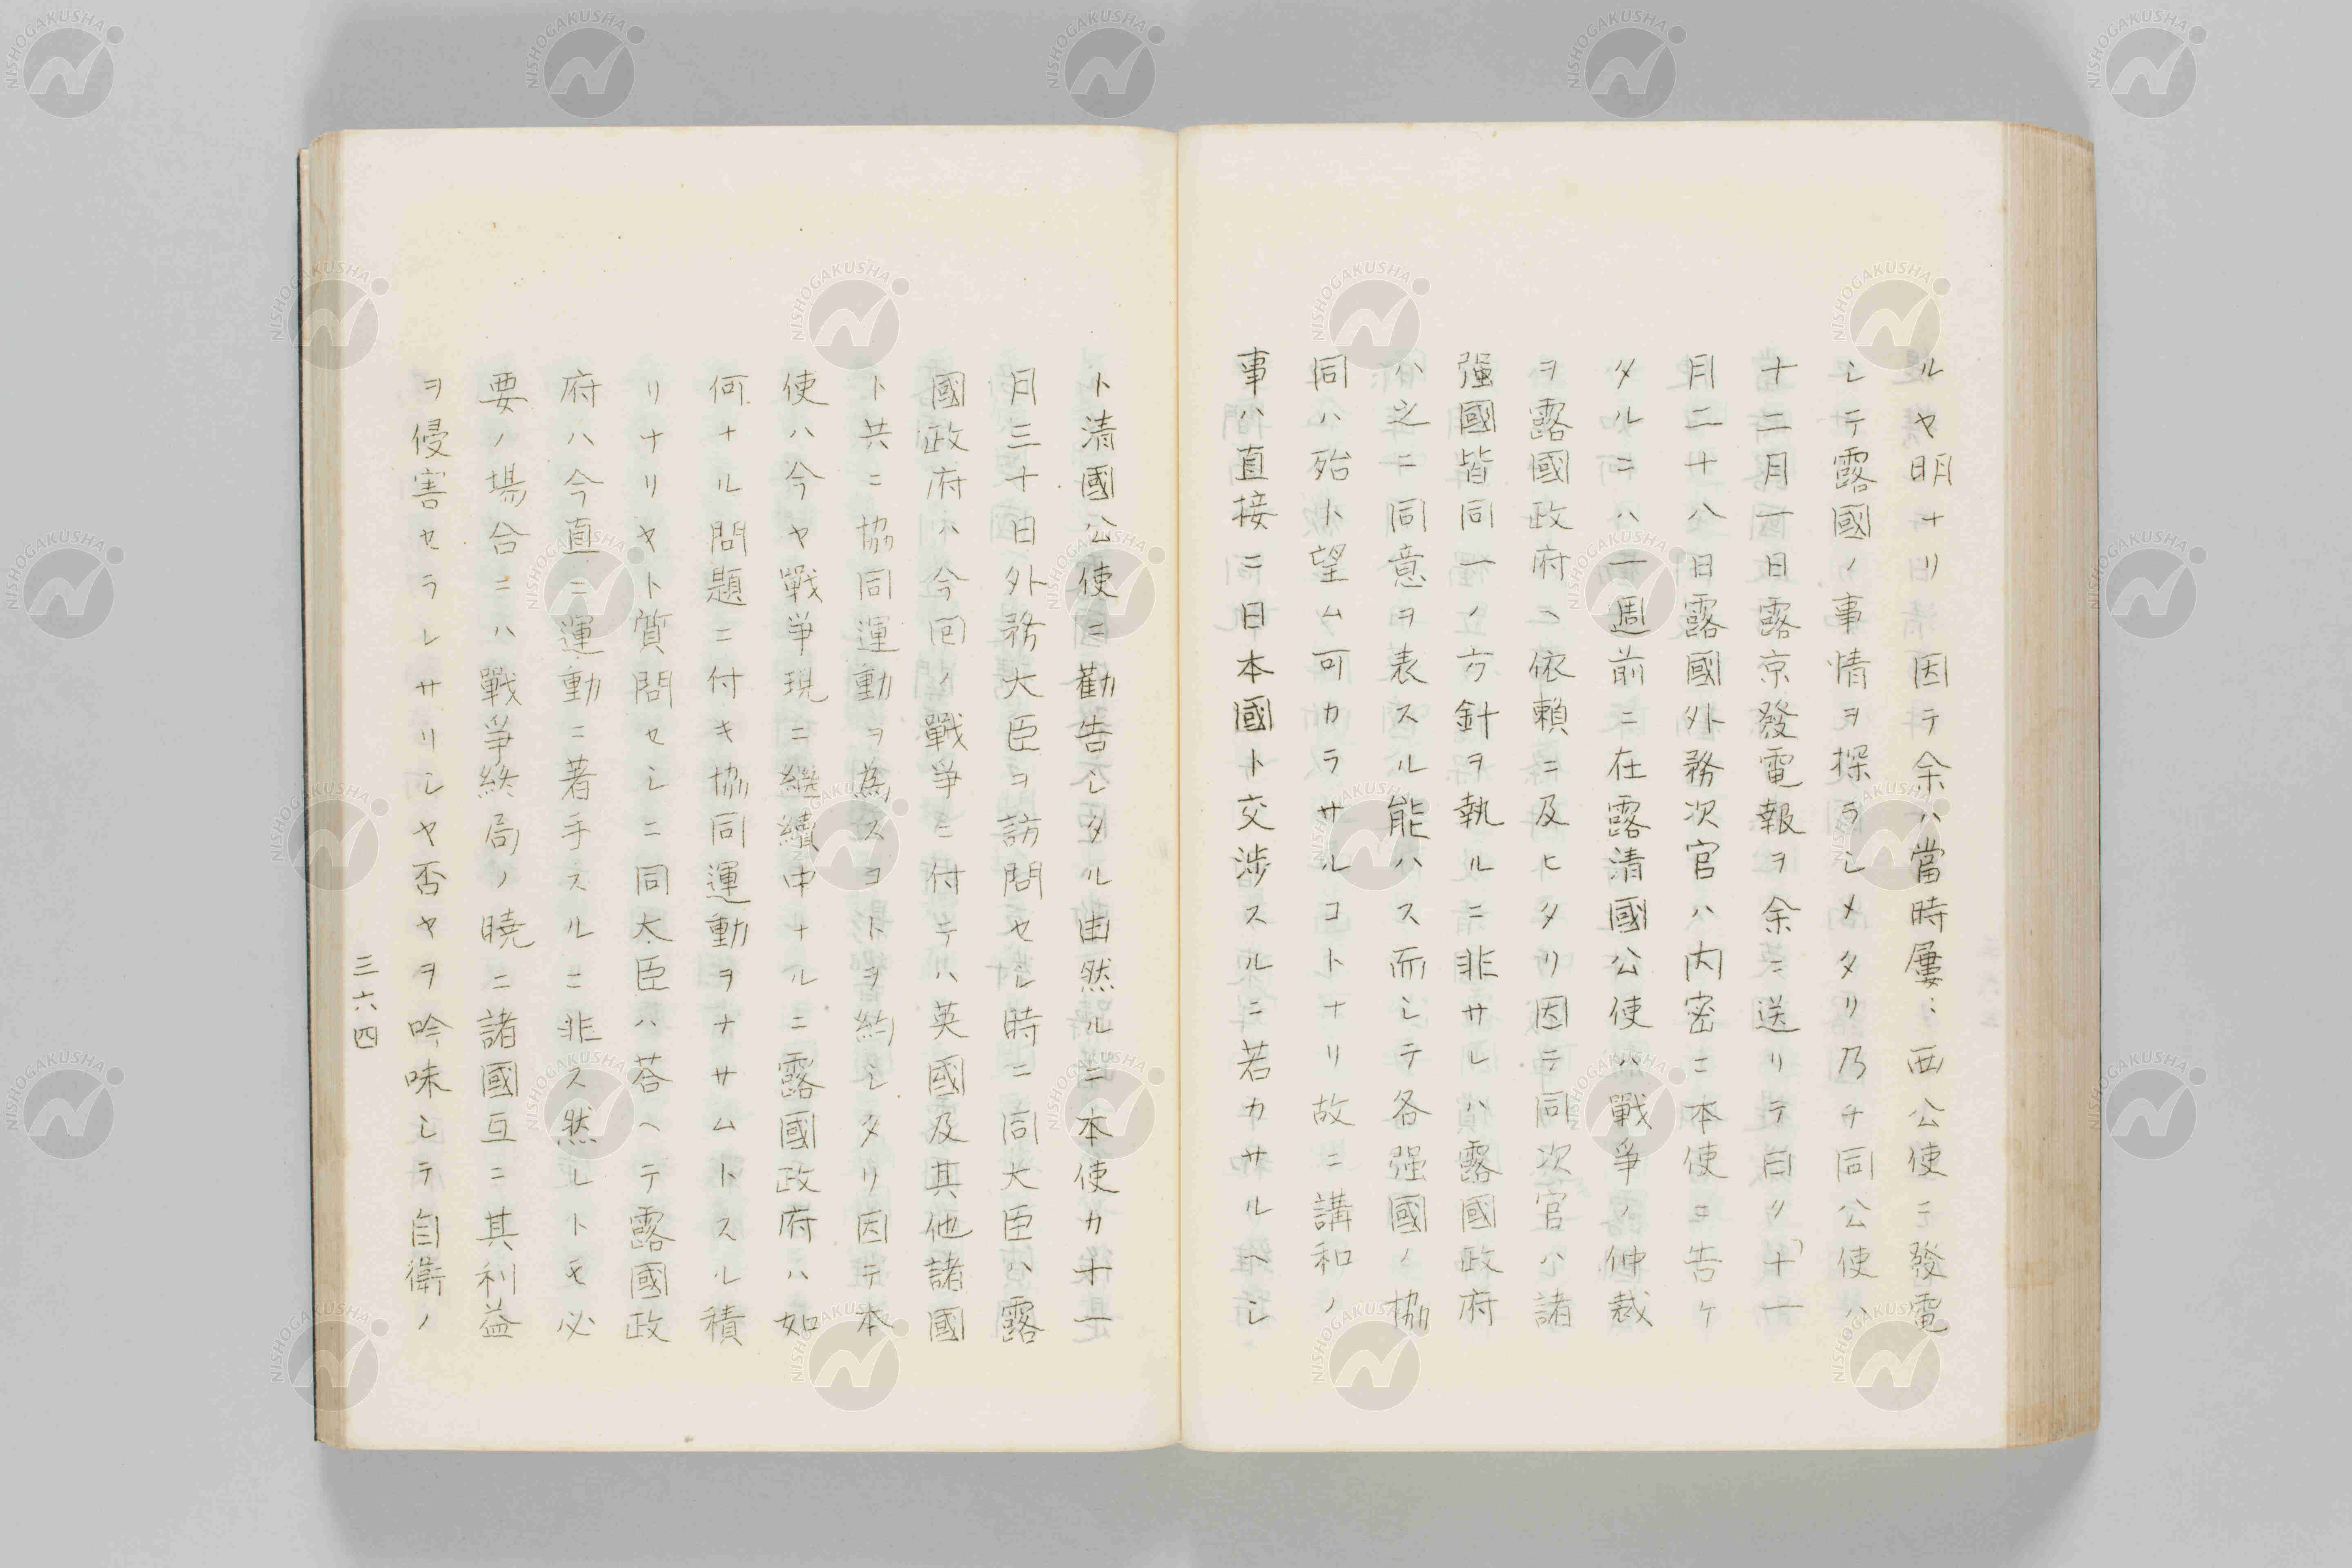 ルヤ明ナリ因テ余ハ當時屢〻西公使ニ發電
シテ露國ノ事情ヲ探ラシメタリ乃チ同公使ハ
十二月一日露京發電報ヲ余ニ送リテ曰ク十一
月二十八日露國外務次官ハ内密ニ本使ニ告ケ
タルニハ一週前ニ在露清國公使ハ戰爭ノ仲裁
ヲ露國政府ヘ依賴ニ及ヒタリ因テ同次官ハ諸
强國皆同一ノ方針ヲ執ルニ非サレハ露國政府
ハ之ニ同意ヲ表スル能ハス而シテ各强國ノ協
同ハ殆ト望ム可カラサルコトナリ故ニ講和ノ
事ハ直接ニ日本國ト交渉スルニ若カサルヘシ
ト清國公使ニ勸告シタル由然ルニ本使カ十一
月三十日外務大臣ヲ訪問セシ時ニ同大臣ハ露
國政府ハ今回ノ戰爭ニ付テハ英國及其他諸國
ト共ニ協同運動ヲ爲スコトヲ約シタリ因テ本
使ハ今ヤ戰爭現ニ繼續中ナルニ露國政府ハ如
何ナル問題ニ付キ協同運動ヲナサムトスル積
リナリヤト質問セシニ同大臣ハ荅ヘテ露國政
府ハ今直ニ運動ニ著手スルニ非ス然レトモ必
要ノ場合ニハ戰爭終局ノ曉ニ諸國互ニ其利益
ヲ侵害セラレサリシヤ否ヤヲ吟味シテ自衛ノ
三六四
NISHOGAKUSHA